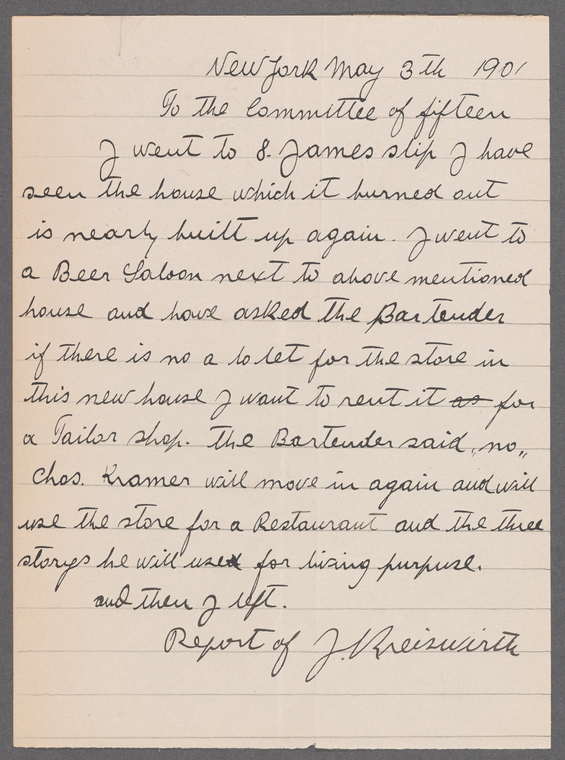 New York May 3th 1901
To the Committee of fifteen
I went to 8. James slip I have
seen the house which it burned out
is nearly built up again. I went to
a Beer Saloon next to above mentioned
house and have asked the Bartender
if there is no a to let for the store in
this new house I want to rent it as for
a Tailor shop. the Bartender said „no„
Chas. Kramer will move in again and will
use the store for a Restaurant and the three
storys he will use for living purpuse.
and then I left.
Report of J. Kreiswirth